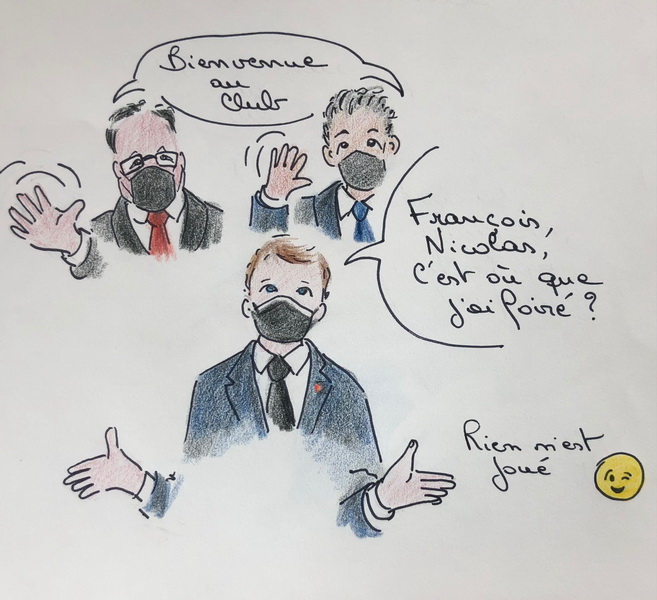 Bienvenue
au
Club
François,
Nicolas,
c'est où que
j'ai foiré ?
Rien n'est
joué